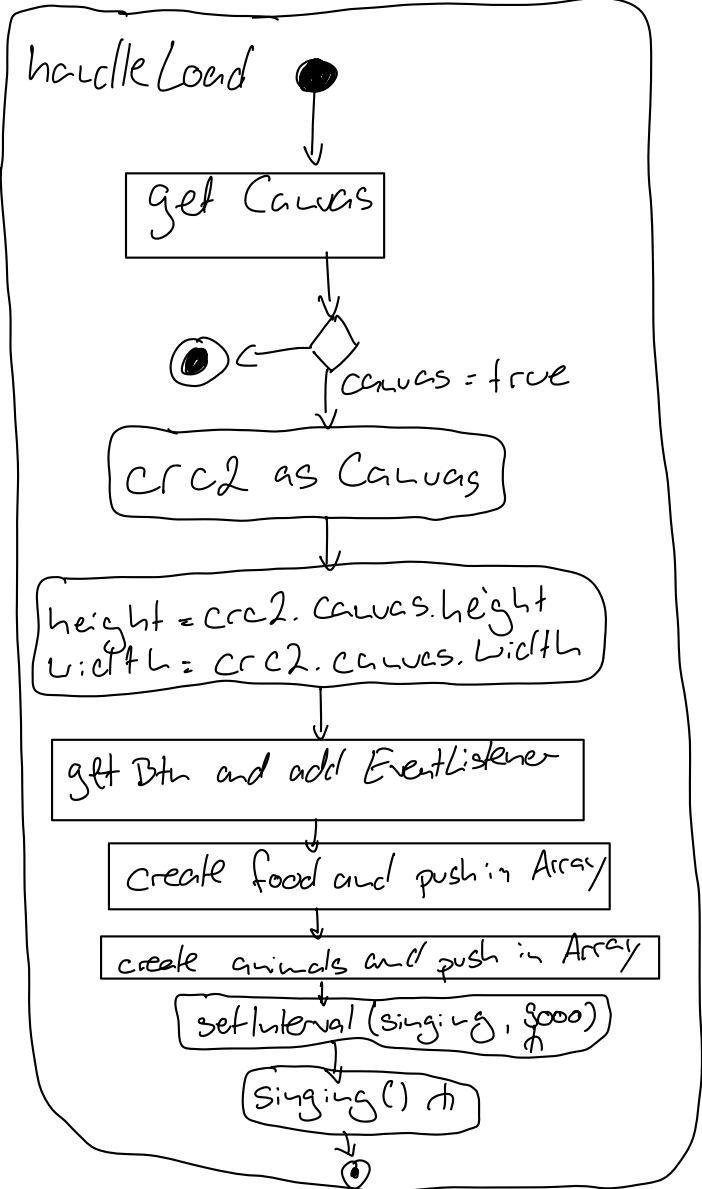 handleLoad
get Canvas
canvas = true
crc2 as Canvas
height = crc2.canvas.height
width = crc2.canvas.width
get Btn and add EventListener
create food and push in Array
create animals and push in Array
setInterval(singing, 3000)
singing()